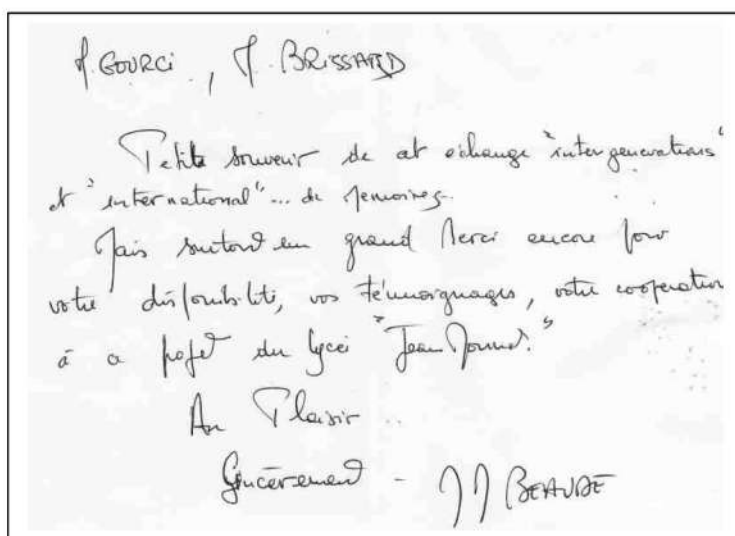 M. GOURCI, M. BRISSARD
Petite souvenir de cet échange "intergenerations"
et "international"... de memoires.
Mais surtout un grand Merci encore pour
votre disponibilité, vos témoignages, votre cooperation
à ce projet du lycée "Jean Monnet."
Au Plaisir
Sincèrement - JJ BEAUDÉ